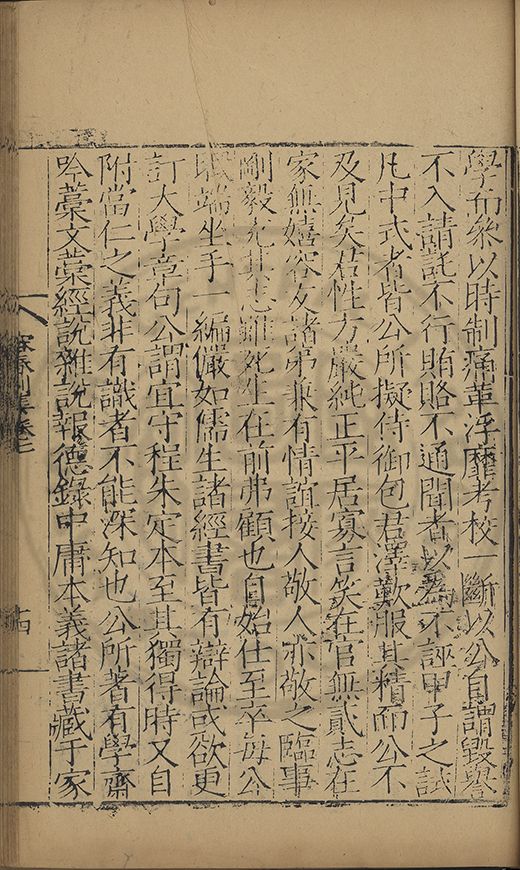 學而參以時制痛革浮靡考校一斷以公自謂毀譽
不入請託不行賄賂不通聞者以爲不誣甲子之試
凡中式者皆公所擬侍御包君澤歎服其精而公不
及見矣君性方嚴純正平居寡言笑在官無貳志在
家無嬉容友諸弟兼有情誼接人敬人亦敬之臨事
剛毅充其志雖死生在前弗顧也自始仕至卒每公
暇端坐手一編儼如儒生諸經書皆有辯論或欲更
訂大學章句公謂宜守程朱定本至其獨得時又自
附當仁之義非有識者不能深知也公所著有學齋
吟藁文藁經說雜說報德錄中庸本義諸書藏于家